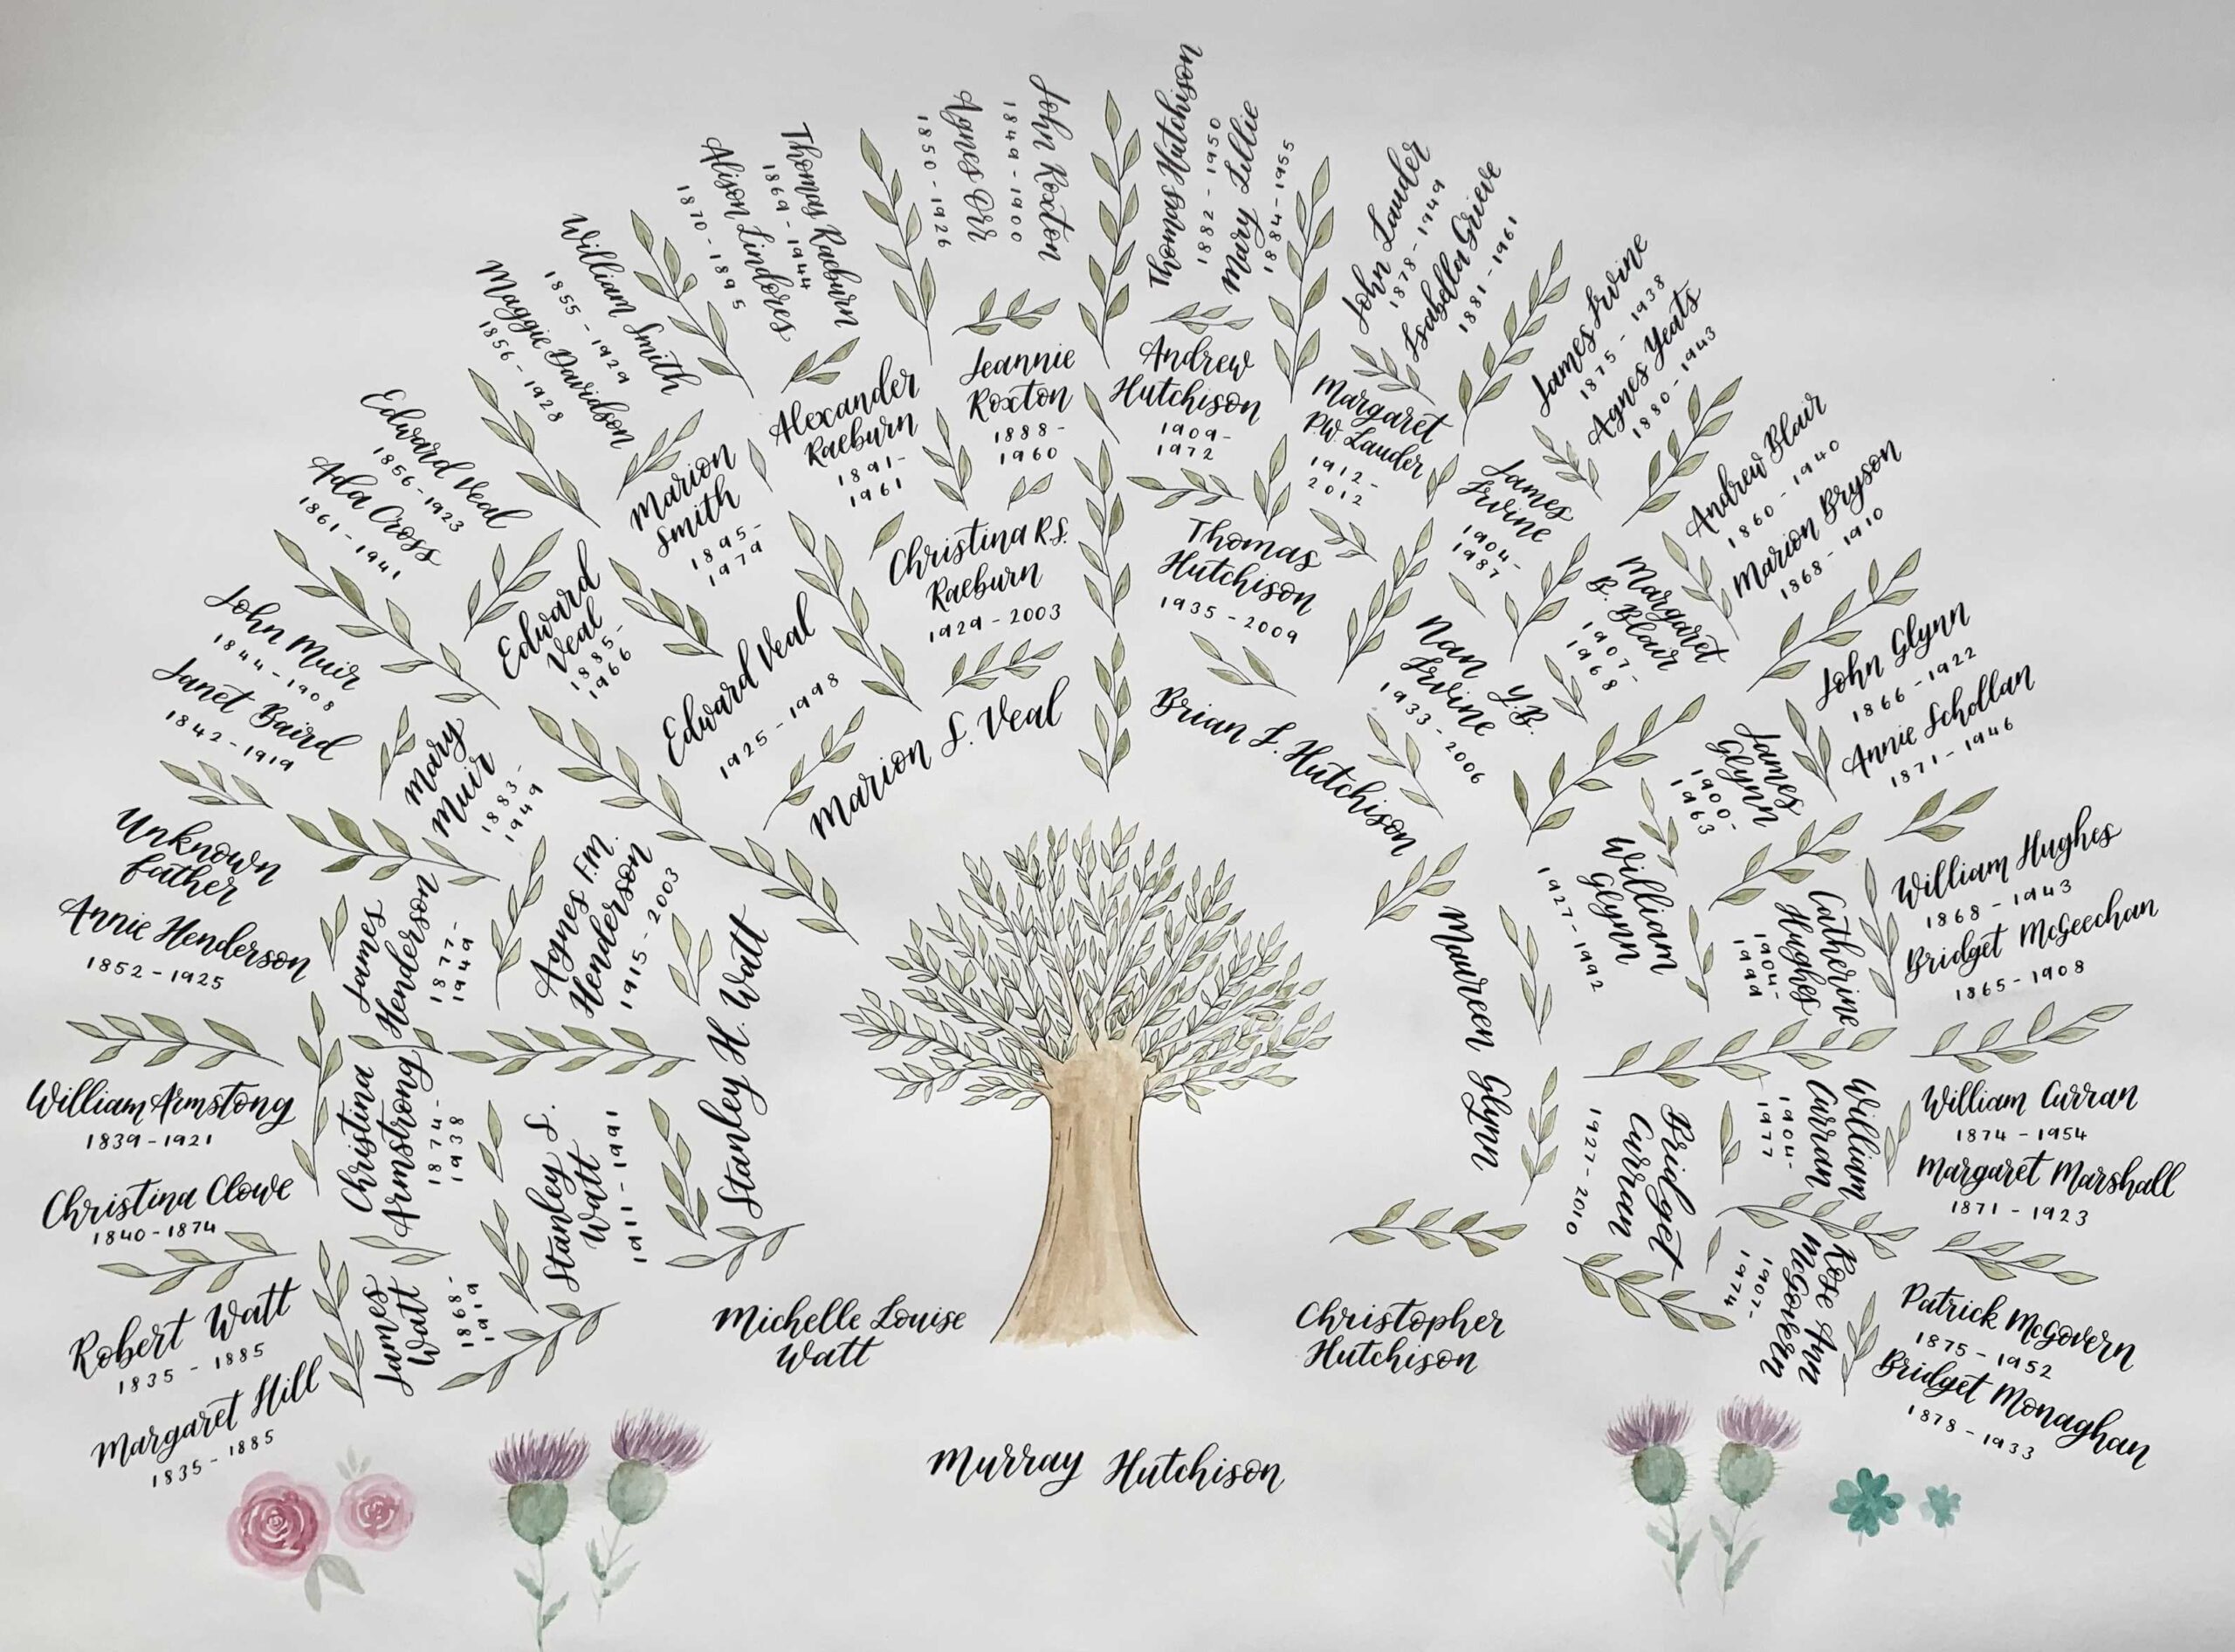 Thomas Hutchison
1882 - 1950
Mary Lillie
1884 - 1955
John Roxton
1849 - 1900
Agnes Orr
1850 - 1926
Thomas Raeburn
1869 - 1944
Alison Lindores
1870 - 1895
William Smith
1855 - 1929
Maggie Davidson
1856 - 1928
Edward Veal
1856 - 1923
Ada Cross
1861 - 1941
John Muir
1844 - 1908
Janet Baird
1842 - 1919
Unknown
Father
Annie Henderson
1852 - 1925
William Armstong
1839 - 1921
Christina Clowe
1840 - 1874
Robert Watt
1835 - 1885
Margaret Hill
1835 - 1885
John Lauder
1878 - 1949
Isabella Grieve
1881 - 1961
James Irvine
1875 - 1938
Agnes Yeats
1880 - 1943
Andrew Blair
1860 - 1940
Marion Bryson
1868 - 1910
John Glynn
1866 - 1922
Annie Schollan
1871 - 1946
William Hughes
1868 - 1943
Bridget McGeechan
1865 - 1908
William Curran
1874 - 1954
Margaret Marshall
1871 - 1923
Patrick McGovern
1875 - 1952
Bridget Monaghan
1878 - 1933
Jeannie
Roxton
1888 -
1960
Alexander
Raeburn
1891 -
1961
Marion
Smith
1895 -
1979
Edward
Veal
1885 -
1966
Mary
Muir
1883 -
1949
James
Henderson
1877 -
1949
Christina
Armstrong
1874 -
1938
James
Watt
1868 -
1919
Andrew
Hutchison
1909 -
1972
Margaret
P.W. Lauder
1912 -
2012
James
Irvine
1904 -
1987
Margaret
B. Blair
1907 -
1968
James
Glynn
1900 -
1963
Catherine
Hughes
1904 -
1999
William
Curran
1904 -
1977
Rose Ann
McGovern
1907 -
1974
Christina R.S.
Raeburn
1929 - 2003
Edward Veal
1925 - 1998
Agnes F.M.
Henderson
1915 - 2003
Stanley S.
Watt
1911 - 1991
Thomas
Hutchison
1935 - 2009
Nan Y.B.
Irvine
1933 - 2006
William
Glynn
1927 - 1992
Bridget
Curran
1927 - 2010
Marion S. Veal
Stanley H. Watt
Brian L. Hutchison
Maureen Glynn
Michelle Louise
Watt
Christopher
Hutchison
Murray Hutchison